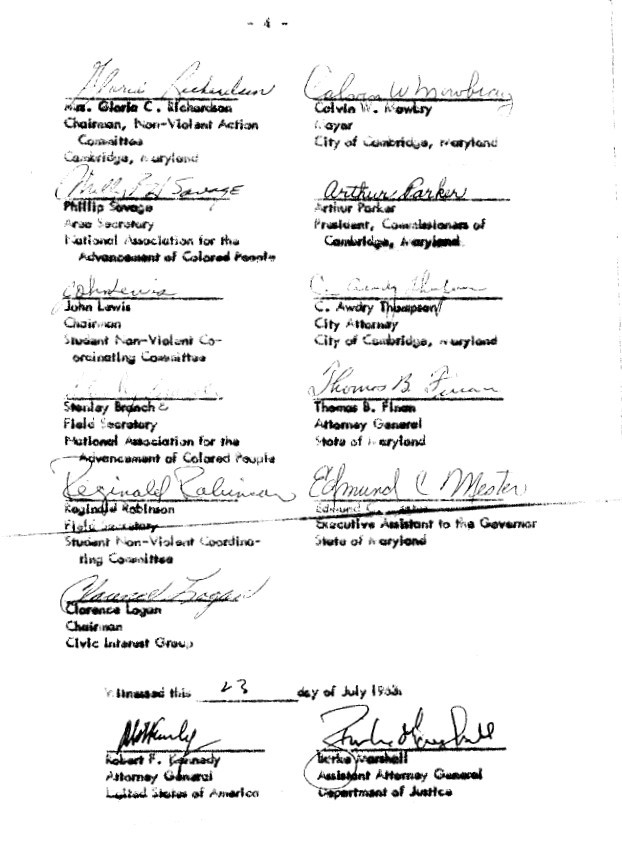 - 4 -
Gloria Richardson
Mrs. Gloria C. Richardson
Chairman, Non-Violent Action
Committee
Cambridge, Maryland
Phillip H Savage
Phillip Savage
Area Secretary
National Association for the
Advancement of Colored People
John Lewis
John Lewis
Chairman
Student Non-Violent Co-
ordinating Committee
Stanley Branch
Field Secretary
National Association for the
Advancement of Colored People
Reginald Robinson
Reginald Robinson
Field Secretary
Student Non-Violent Coordina-
ting Committee
Clarence Logan
Clarence Logan
Chairman
Civic Interest Group
Calvin W Mowbray
Calvin W. Mowbry
Mayor
City of Cambridge, Maryland
Arthur Parker
Arthur Parker
President, Commissioners of
Cambridge, Maryland
C. Awdry Thompson
C. Awdry Thompson
City Attorney
City of Cambridge, Maryland
Thomas B. Finan
Thomas B. Finan
Attorney General
State of Maryland
Edmund C Mester
Edmund C.
Executive Assistant to the Governor
State of Maryland
Witnessed this 23 day of July 1963:
Robert F. Kennedy
Attorney General
United States of America
Burke Marshall
Burke Marshall
Assistant Attorney General
Department of Justice